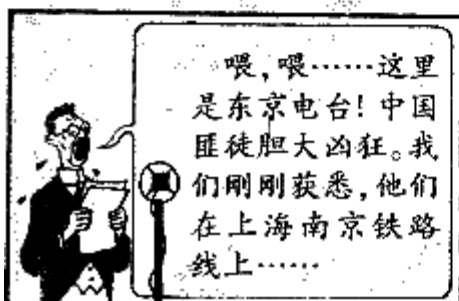 喂,喂……这里
是东京电台!中国
匪徒胆大凶狂。我
们刚刚获悉,他们
在上海南京铁路
线上……